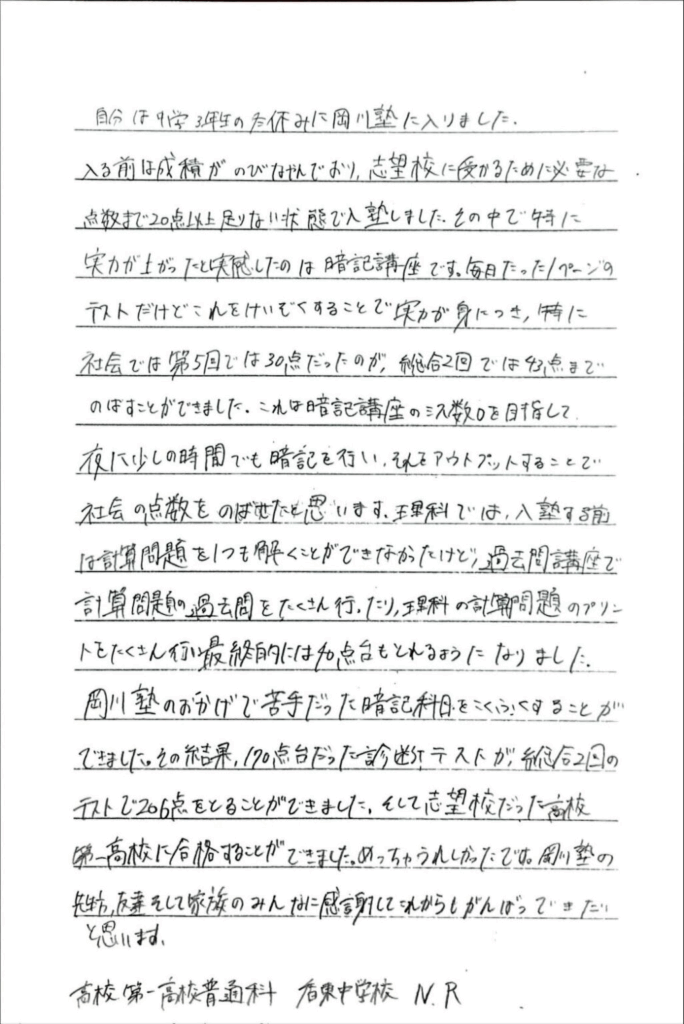 自分は中学3年生の春休みに岡川塾に入りました.
入る前は成積がのびなやんでおり,志望校に受かるために必要な
点数まで20点以上足りない状態で入塾しました.その中で特に
実力が上がったと実感したのは暗記講座です。毎日たった1ページの
テストだけどこれをけいぞくすることで実力が身につき,特に
社会では第5回では30点だったのが,総合2回では43点まで
のばすことができました.これは暗記講座のミス数0を目指して
夜に少しの時間でも暗記を行い,それをアウトプットすることで
社会の点数をのばせたと思います.理科では,入塾する前
は計算問題を1つも解くことができなかったけど,過去問講座で
計算問題の過去問をたくさん行ったり,理科の計算問題のプリン
トをたくさん行い最終的には40点台もとれるようになりました.
岡川塾のおかげで苦手だった暗記科目をこくふくすることが
できました。その結果,170点台だった診断テストが,総合2回の
テストで206点をとることができました.そして志望校だった高校
第一高校に合格することができました。めっちゃうれしかったです。岡川塾の
先生方,友達そして家族のみんなに感謝してこれからもがんばってきたい
と思います.
高校第一高校普通科 香東中学校 N.R